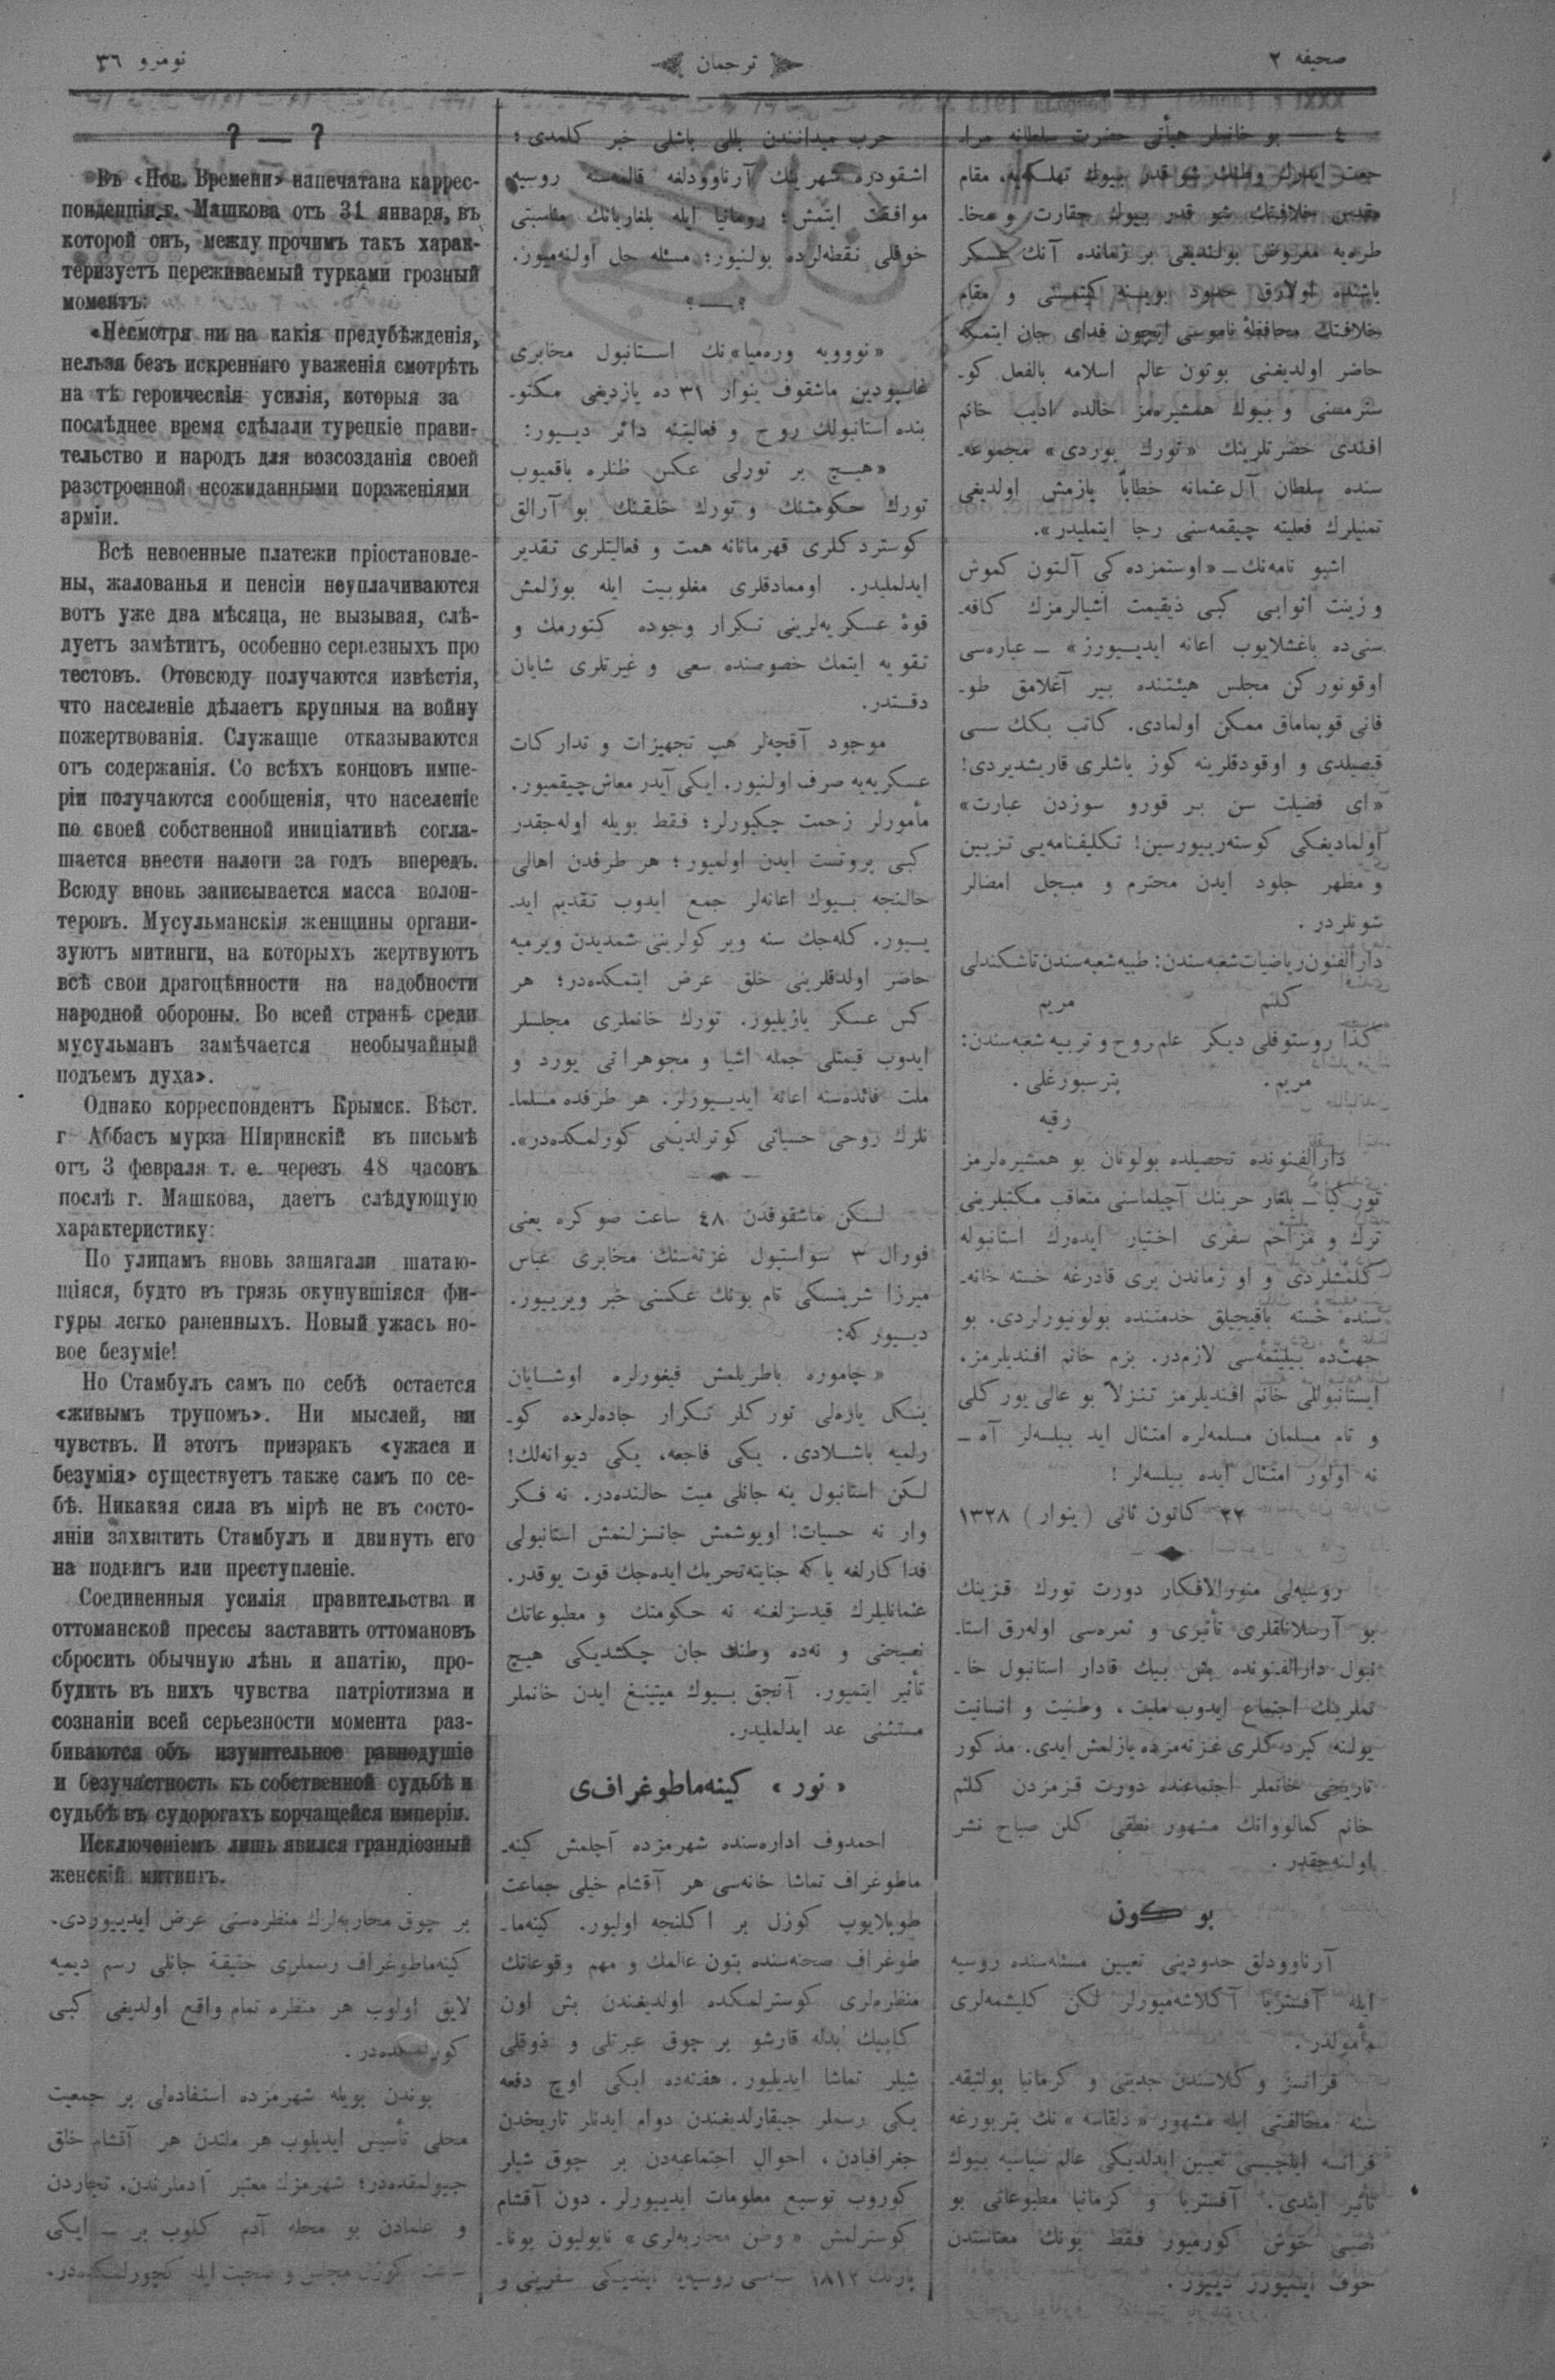 صحیفه ۲
ترجمان
نومرو ۳٦
٤ — بو خانملر هیأتی حضرت سلطانه مرا-
جعت ایدرك وطنك شو قدر بیوك تهلکه‌یه، مقام
مقدس خلافتك شو قدر بیوك حقارت و مخا-
طره‌یه معروض بولندیغی بر زمانده آنك عسکر
باشنده اولارق حدود بوینه کیتمسنی و مقام
خلافتك محافظهٔ ناموسی ایچون فدای جان ایتمکه
حاضر اولدیغنی بوتون عالم اسلامه بالفعل کو-
سترمسنی و بیوك همشیره‌مز خالده ادیب خانم
افندی حضرتلرینك «تورك یوردی» مجموعه-
سنده سلطان آل عثمانه خطاباً یازمش اولدیغی
تمنیلرك فعلیته چیقمه‌سنی رجا ایتملیدر».
اشبو نامه‌نك — «اوستمزده کی آلتون کموش
و زینت اثوابی کبی ذیقیمت اشیالرمزك کافه-
سنی‌ده باغشلایوب اعانه ایدییورز» — عباره‌سی
اوقونورکن مجلس هیئتنده بیر آغلامق طو-
فانی قوپماماق ممکن اولمادی. کاتب بکك سسی
قیصیلدی و اوقودقلرینه کوز یاشلری قاریشدیردی!
«ای فضیلت سن بر قورو سوزدن عبارت»
اولمادیغکی کوسته‌رییورسین! تکلیفنامه‌یی تزیین
و مظهر جلود ایدن محترم و مبجل امضالر
شونلردر.
دارالفنون ریاضیات شعبه‌سندن: طبیه شعبه‌سندن تاشکندلی
کلثم مریم
کذا روستوفلی دیکر علم روح و تربیه شعبه‌سندن:
مریم. پترسبورغلی.
رقیه
دارالفنونده تحصیلده بولونان بو همشیره‌لرمز
تورکیا — بلغار حربنك آچیلماسنی متعاقب مکتبلرینی
ترك و مزاحم سفری اختیار ایده‌رك استانبوله
کلمشلردی و او زماندن بری قادرغه خسته خانه-
سنده خسته باقیجیلق خدمتنده بولونیورلردی. بو
جهت‌ده بیلینمه‌سی لازم‌در. بزم خانم افندیلرمز،
استانبوللی خانم افندیلرمز تنزلاً بو عالی یورکلی
و تام مسلمان مسلمه‌لره امتثال اید بیلسه‌لر آه —
نه اولور امتثال ایده بیلسه‌لر !
۲۲ کانون ثانی (ینوار) ۱۳۲۸
روسیه‌لی منورالافکار دورت تورك قزینك
بو آرسلانلقلری تأثیری و ثمره‌سی اوله‌رق استا-
نبول دارالفنونده بش بیك قادار استانبول خا-
نملرینك اجتماع ایدوب ملیت، وطنیت و انسانیت
یولنه کیردکلری غزته‌مزده یازلمش ایدی. مذکور
تاریخی خانملر اجتماعنده دورت قزمزدن کلثم
خانم کمالووانك مشهور نطقی کلن صباح نشر
اولنه‌جقدر.
بو کون
آرناوودلق حدودینی تعیین مسئله‌سنده روسیه
ایله آفستریا آکلاشه‌میورلر لکن کلیشمه‌لری
مأمولدر.
فرانسز وکلاسندن جدیتی و کرمانیا پولتیقه-
سنه مخالفتی ایله مشهور «دلقاسه» نك پتربورغه
فرانسه ایلچیسی تعیین ایدلدیکی عالم سیاسیه بیوك
تأثیر ایتدی. آفستریا و کرمانیا مطبوعاتی بو
نصبی خوش کورمیور فقط بونك معناسندن
خوف ایتمیورز دییور.
حرب میدانندن بللی باشلی خبر کلمدی؛
اشقودره شهرینك آرناوودلغه قالمه‌سنه روسیه
موافقت ایتمش؛ رومانیا ایله بلغاریانك مناسبتی
خوفلی نقطه‌لرده بولنیور؛ مسئله حل اولنه‌میور.
؟ — ؟
«نوویه وره‌میا» نك استانبول مخابری
غاسپودین ماشقوف ینوار ۳۱ ده یازدیغی مکتو-
بنده استانبولك روح و فعالیتنه دائر دییور:
«هیچ بر تورلی عکس ظنلره باقمیوب
تورك حکومتنك و تورك خلقنك بو آرالق
کوستردکلری قهرمانانه همت و فعالیتلری تقدیر
ایدلملیدر. اوممادقلری مغلوبیت ایله بوزلمش
قوهٔ عسکریه‌لرینی تکرار وجوده کتورمك و
تقویه ایتمك خصوصنده سعی و غیرتلری شایان
دقتدر.
موجود آقچه‌لر هپ تجهیزات و تدارکات
عسکریه‌یه صرف اولنیور. ایکی آیدر معاش چیقمیور.
مأمورلر زحمت چکیورلر؛ فقط بویله اوله‌جقدر
کبی پروتست ایدن اولمیور؛ هر طرفدن اهالی
حالنجه بیوك اعانه‌لر جمع ایدوب تقدیم اید-
ییور. کله‌جك سنه ویرکولرینی شمدیدن ویرمیه
حاضر اولدقلرینی خلق عرض ایتمکده‌در؛ هر
کس عسکر یازیلیور. تورك خانملری مجلسلر
ایدوب قیمتلی جمله اشیا و مجوهراتی یورد و
ملت فائده‌سنه اعانه ایدییورلر. هر طرفده مسلما-
نلرك روحی حسیاتی کوترلدیکی کورلمکده‌در».
لکن ماشقوفدن ٤٨ ساعت صوکره یعنی
فورال ۳ سواستپول غزته‌سنك مخابری عباس
میرزا شرینسکی تام بونك عکسنی خبر ویرییور.
دییور که:
«چاموره باطریلمش فیغورلره اوشایان
ینکل یاره‌لی تورکلر تکرار جاده‌لرده کو-
رلمیه باشلادی. یکی فاجعه، یکی دیوانه‌لك!
لکن استانبول ینه جانلی میت حالنده‌در. نه فکر
وار نه حسیات! اویوشمش جانسزلنمش استانبولی
فداکارلغه یا که جنایته تحریك ایده‌جك قوت یوقدر.
عثمانلیلرك قیدسزلغنه نه حکومتك و مطبوعاتك
نصیحتی و نه‌ده وطنك جان چکشدیکی هیچ
تأثیر ایتمیور. آنجق بیوك میتینغ ایدن خانملر
مستثنی عد ایدلملیدر.
«نور» کینه‌ماطوغراف‌ی
احمدوف اداره‌سنده شهرمزده آچلمش کینه-
ماطوغراف تماشا خانه‌سی هر آقشام خیلی جماعت
طوپلایوب کوزل بر اکلنجه اولیور. کینه‌ما-
طوغراف صحنه‌سنده بتون عالمك و مهم وقوعاتك
منظره‌لری کوسترلمکده اولدیغندن بش اون
کاپیك بدله قارشو بر چوق عبرتلی و ذوقلی
شیلر تماشا ایدیلیور. هفته‌ده ایکی اوچ دفعه
یکی رسملر چیقارلدیغندن دوام ایدنلر تاریخدن
جغرافیادن، احوال اجتماعیه‌دن بر چوق شیلر
کوروب توسیع معلومات ایدییورلر. دون آقشام
کوسترلمش «وطن محاربه‌لری» ناپولیون بونا-
پارتك ۱۸۱۲ سنه‌سی روسیه‌یه ایتدیکی سفرینی و
? — ?
Въ «Нов. Времени» напечатана каррес-
понденція г. Машкова отъ 31 января, въ
которой онъ, между прочимъ такъ харак-
теризуетъ переживаемый турками грозный
моментъ:
«Несмотря ни на какія предубѣжденія,
нельзя безъ искренняго уваженія смотрѣть
на тѣ героическія усилія, которыя за
послѣднее время сдѣлали турецкіе прави-
тельство и народъ для возсозданія своей
разстроенной неожиданными пораженіями
арміи.
Всѣ невоенные платежи пріостановле-
ны, жалованья и пенсіи неуплачиваются
вотъ уже два мѣсяца, не вызывая, слѣ-
дуетъ замѣтить, особенно серьезныхъ про
тестовъ. Отовсюду получаются извѣстія,
что населеніе дѣлаетъ крупныя на войну
пожертвованія. Служащіе отказываются
отъ содержанія. Со всѣхъ концовъ импе-
ріи получаются сообщенія, что населеніе
по своей собственной иниціативѣ согла-
шается внести налоги за годъ впередъ.
Всюду вновь записывается масса волон-
теровъ. Мусульманскія женщины органи-
зуютъ митинги, на которыхъ жертвуютъ
всѣ свои драгоцѣнности на надобности
народной обороны. Во всей странѣ среди
мусульманъ замѣчается необычайный
подъемъ духа».
Однако корреспондентъ Крымск. Вѣст.
г Аббасъ мурза Ширинскій въ письмѣ
отъ 3 февраля т. е. черезъ 48 часовъ
послѣ г. Машкова, даетъ слѣдующую
характеристику:
По улицамъ вновь зашагали шатаю-
щіяся, будто въ грязь окунувшіяся фи-
гуры легко раненныхъ. Новый ужасъ но-
вое безуміе!
Но Стамбулъ самъ по себѣ остается
«живымъ трупомъ». Ни мыслей, ни
чувствъ. И этотъ призракъ «ужаса и
безумія» существуетъ также самъ по се-
бѣ. Никакая сила въ мірѣ не въ состо-
яніи захватить Стамбулъ и двинуть его
на подвигъ или преступленіе.
Соединенныя усилія правительства и
оттоманской прессы заставить оттомановъ
сбросить обычную лѣнь и апатію, про-
будить въ нихъ чувства патріотизма и
сознаніи всей серьезности момента раз-
биваются объ изумительное равнодушіе
и безучастность къ собственной судьбѣ и
судьбѣ въ судорогахъ корчащейся имперіи.
Исключеніемъ лишь явился грандіозный
женскій митингъ.
بر چوق محاربه‌لرك منظره‌سنی عرض ایدییوردی.
کینه‌ماطوغراف رسملری حقیقة جانلی رسم دیمیه
لایق اولوب هر منظره تمام واقع اولدیغی کبی
کورلمکده‌در.
بوندن بویله شهرمزده استفاده‌لی بر جمعیت
محلی تأسیس ایدیلوب هر ملتدن هر آقشام خلق
جیولمقده‌در؛ شهرمزك معتبر آدملرندن، تجاردن
و علمادن بو محله آدم کلوب بر — ایکی
ساعت کوزل مجلس و صحبت ایله کچورلمکده‌در.